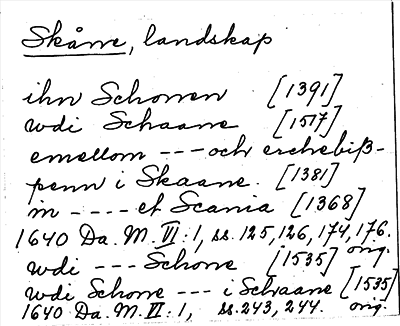 Skåne, landskap
ihn Schonen [1391]
wdi Schaane [1517]
emellom --- och erchebiß-
penn i Skaane. [1381]
in ---- et Scania [1368]
1640 Da. M. VI: 1, ss. 125, 126, 174, 176.
orig.
wdi --- Schone [1535]
wdi Schone --- i Schaane [1535]
1640 Da. M. VI: 1, ss. 243, 244. orig.